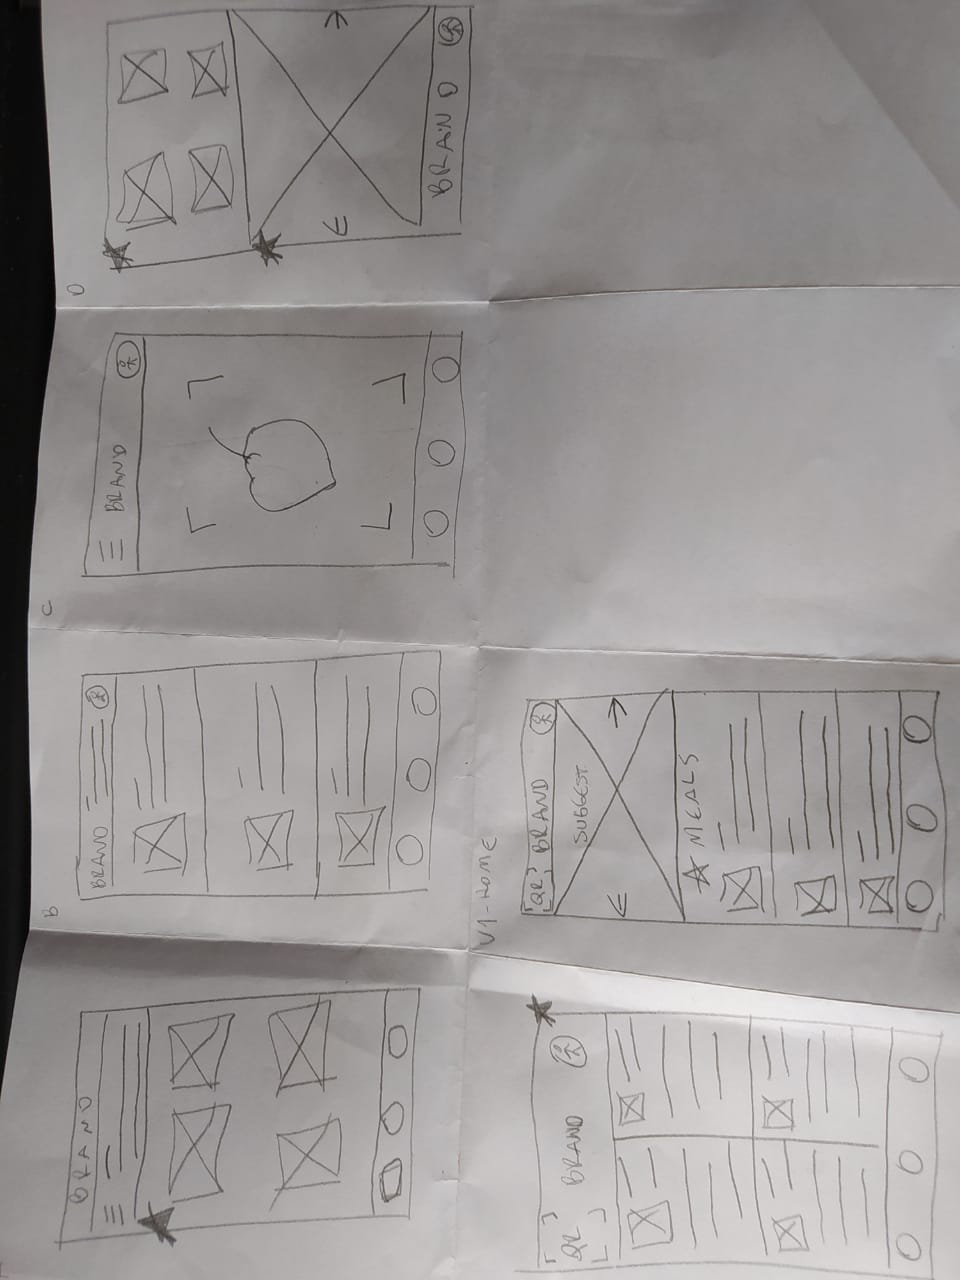 BRAND
B
BRAND
C
BRAND
D
BRAND
QR
BRAND
V1-HOME
QR BRAND
SUGGEST
MEALS